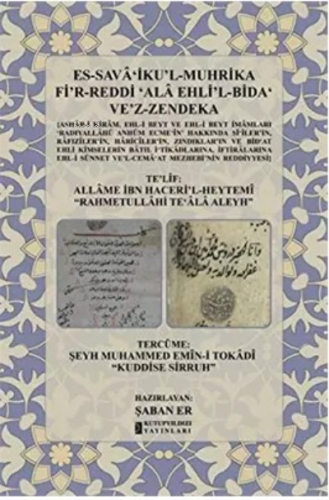 ES-SAVÂ‘İKU’L-MUHRİKA
Fİ’R-REDDİ ‘ALÂ EHLİ’L-BİDA‘
VE’Z-ZENDEKA
(ASHÂB-I KİRÂM, EHL-İ BEYT VE EHL-İ BEYT İMÂMLARI
‘RADIYALLÂHÜ ANHÜM ECME‘ÎN’ HAKKINDA Şİ‘İLER’İN,
RÂFIZÎLER’İN, HÂRİCÎLER’İN, ZINDIKLAR’IN VE BİD‘AT
EHLİ KİMSELERİN BÂTIL İ‘TİKÂDLARINA, İFTİRÂLARINA
EHL-İ SÜNNET VE’L-CEMÂ‘AT MEZHEBİ’NİN REDDİYYESİ)
TE’LİF:
ALLÂME İBN HACERİ’L-HEYTEMÎ
“RAHMETULLÂHİ TE‘ÂLÂ ALEYH”
TERCÜME:
ŞEYH MUHAMMED EMÎN-İ TOKÂDÎ
“KUDDİSE SİRRUH”
HAZIRLAYAN:
ŞABAN ER
KUTUPYILDIZI
YAYINLARI